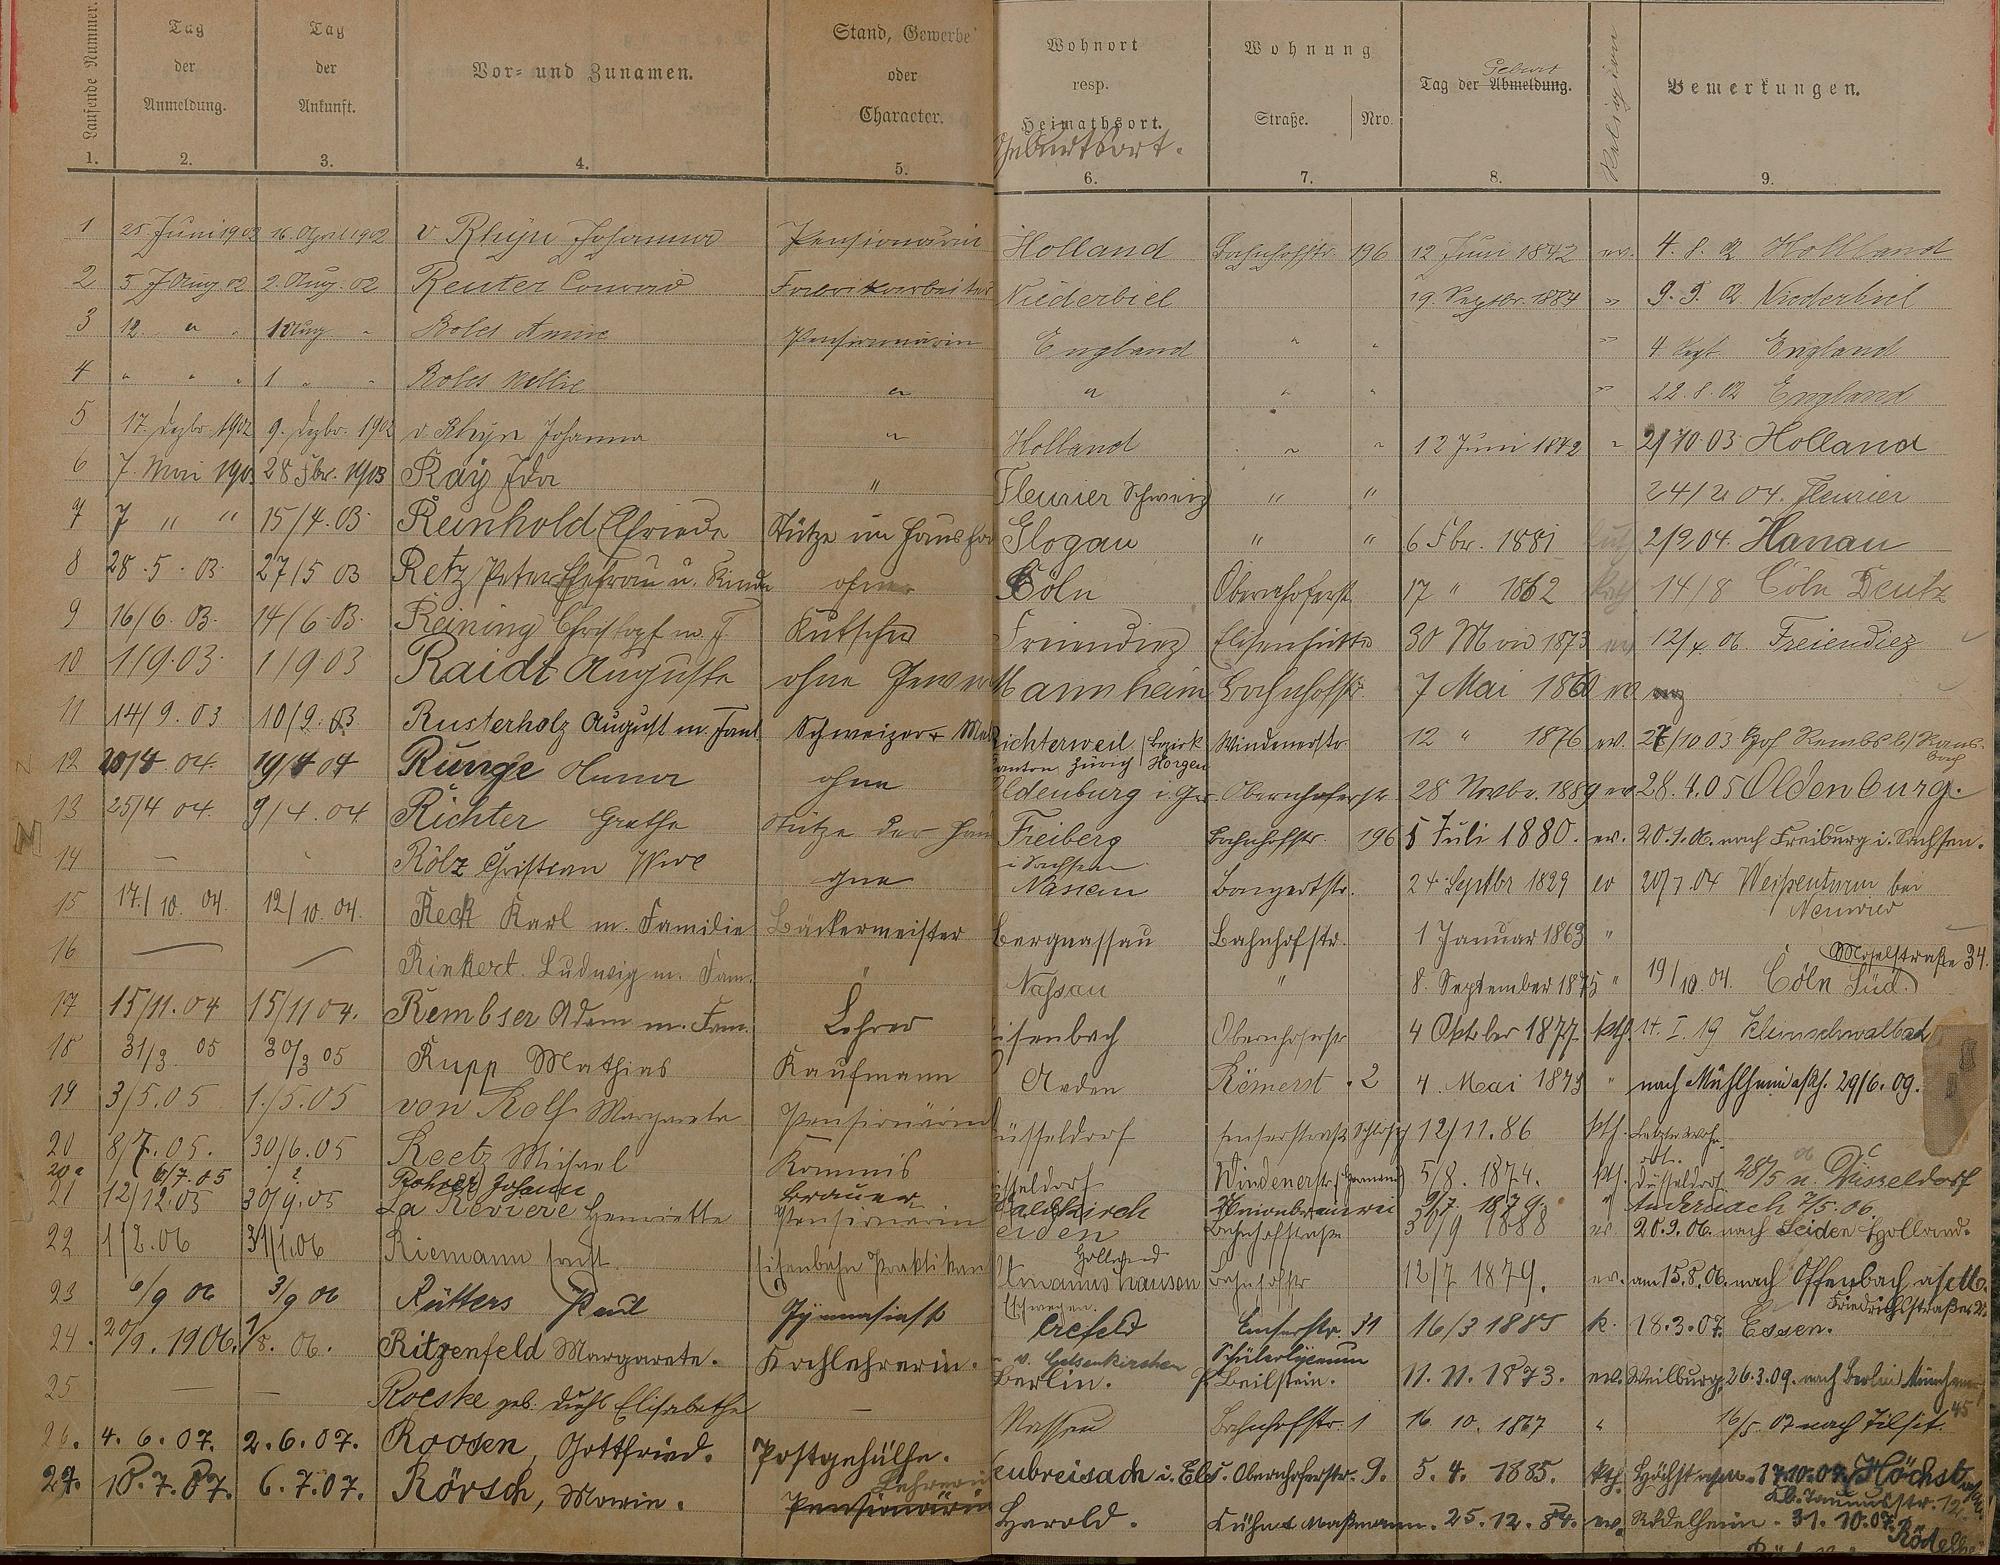 Laufende Nummer.
Tag der Anmeldung.
Tag der Ankunft.
Vor- und Zunamen.
Stand, Gewerbe oder Character.
Wohnort resp. Heimathsort. Geburtsort.
Wohnung
Straße. Nro.
Tag der Abmeldung. Geburt
Religion
Bemerkungen.
1. 2. 3. 4. 5. 6. 7. 8. 9.
1 25. Juni 1902 16. April 1902 v Rhijn Johanna Pensionärin Holland Bahnhofstr. 196 12 Juni 1842 ev. 4. 8. 02 Holland
2 5 Aug 02 2. Aug. 02 Reuter Conrad Fabrikarbeiter Niederbiel 19. Septbr. 1884 " 9. 9. 02 Niederbiel
3 12. " " 1 Aug " Roles Annie Pensionärin England " " " 4 Sept. England
4 " " " 1 " " Roles Nellie " " " " " 22. 8. 02 England
5 17. Dezbr. 1902 9. Dezbr. 1902 v. Rhijn Johanna " Holland " " 12 Juni 1842 " 2/10.03 Holland
6 7. Mai 1903 28 Fbr. 1903 Ray Ida " Fleurier Schweiz " " 24/2 04. Fleurier
7 7 " " 15/4. 03. Reinhold Elfriede Stütze im Haush Glogau " " 6 Fbr. 1881 2/9 04. Hanau
8 28. 5. 03. 27/5 03 Retz Peter Ehefrau u. Kinder ohne Cöln Obernhoferst. 17 " 1862 kath 14/8 Cöln Deutz
9 16/6. 03. 14/6. 03. Reining Christoph m. F. Kutscher Freiendiez Elisenhütte 30 Mai 1873 ev 12/4. 06 Freiendiez
10 1/9. 03. 1/9 03 Raidt Auguste ohne Gewerbe Mannheim Bahnhofstr. 7 Mai 1860 ev.
11 14/9. 03 10/9. 03 Rusterholz August m. Faml. Schweizer Richterweil, Bezirk Horgen Kanton Zürich Windenerstr. 12 " 1876 ev. 27/10 03 Hof
12 20/4 04. 19/4 04 Runge Anna ohne Oldenburg i. Gr. Obernhoferstr 28 Novbr. 1889 ev 28. 4. 05 Oldenburg.
13 25/4 04. 9/4. 04 Richter Grethe Stütze der Hau Freiberg i. Sachsen Bahnhofstr. 196 5 Juli 1880. ev. 20. 1. 06. nach Freiburg i. Sachsen.
14 — Rölz Christian Wwe ohne Nassau Bongertstr. 24 Septbr 1829 ev 20/7. 04 Weißenturm bei Neuwied
15 17./10. 04. 12/10. 04. Reck Karl m. Familie Bäckermeister Bergnassau Bahnhofstr. 1 Januar 1863 "
16 — — Rinkert. Ludwig m. Fam. " Nassau " 8. September 1875 " 19/10. 04. Cöln Süd. Moselstraße 34.
17 15/11. 04 15/11 04. Rembser Adam m. Fam. Lehrer Eisenbach Obernhoferstr 4 Oktober 1877. kth. 14. I. 19 Kleinschwalbach
18 31/3. 05 30/3 05 Rupp Mathias Kaufmann Aaden Römerst. 2 4. Mai 1873 " nach Mühlheim a/Rh. 29/6. 09.
19 3/5. 05 1./5. 05 von Rolf Margarete Pensionärin Düsseldorf Emserstraße Schloß 12/11. 86 kth. Letzter Wohnort. Düsseldorf
20 8/7. 05. 30/6. 05 Reetz Michael Kommis Düsseldorf Windenerstr. 5/8. 1874. kth. 28/5 n. Düsseldorf
20a 6/7. 05 ? Rohrer Johann Brauer Waldkirch Unionbrauerei 9/7. 1879. " Andernach 7/5. 06.
21 12/12. 05 30/9. 05 La Riviere Henriette Pensionärin Leiden Holland Bahnhofstraße 30/9 1888 ev. 20. 9. 06. nach Leiden Holland.
22 1/2. 06 31/1. 06 Riemann Ernst. Eisenbahn Praktikan Eschwegen. Bahnhofstr 12/7 1879. ev. am 15. 8. 06. nach Offenbach
23 6/9 06 3/9 06 Rütters Paul Gymnasiast Crefeld Emserstr. 31 16/3 1885 k. 18. 3. 07. Essen.
24. 20/9. 1906. 1/8. 06. Ritzenfeld Margarete. Kochlehrerin. v. Gelsenkirchen Berlin. Schülerlyceum Beilstein. 11. 11. 1873. ev. Weilburg, 26. 3. 09. nach Berlin
25 — — Roeske geb. Diehl Elisabethe — Nassau Bahnhofstr. 1 16. 10. 1867 " 16/5. 07 nach Tilsit.
26. 4. 6. 07. 2. 6. 07. Roosen, Gottfried. Postgehülfe. Neubreisach i. Els. Obernhoferstr. 9. 5. 4. 1885. kth. Höchst a/M. 17. 10. 07. Höchst Taunusstr. 12
27. 10. 7. 07. 6. 7. 07. Rörsch, Marie. Pensionärin Lehrerin Harold. Kühne Maßmann. 25. 12. 84. ev. Rödelheim. 31. 10. 07. Rödelhe